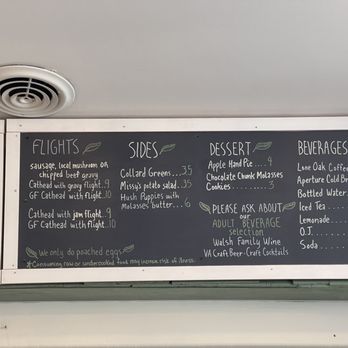 FLIGHTS
sausage, local mushroom OR
chipped beef gravy
Cathead with gravy flight..9
GF Cathead with flight..10
Cathead with jam flight..9
GF Cathead with flight..10
We only do poached eggs
*Consuming raw or undercooked food may increase risk of illness.
SIDES
Collard Greens...3.5
Missy's potato salad...3.5
Hush Puppies with
Molasses butter...6
DESSERT
Apple Hand Pie....4
Chocolate Chunk Molasses
Cookies..........3
PLEASE ASK ABOUT
our
ADULT BEVERAGE
selection
Walsh Family Wine
VA Craft Beer-Craft Cocktails
BEVERAGES
Lone Oak Coffee
Aperture Cold Br
Bottled Water
Iced Tea
Lemonade....
O.J.
Soda....